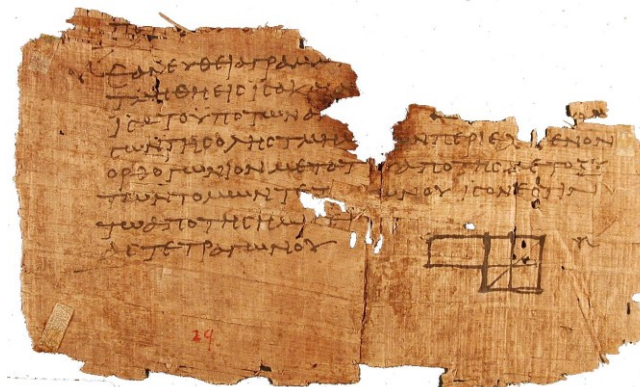 ΕΑΝΕΥΘΕΙΑΓΡΑΜΜ
ΤΜΗΘΗΕΙΣΙΣΑΚΑΙΑ
ΙΣΑΤΟΥΠΟΤΩΝΑ
ΣΩΝΤΗΣΟΛΗΣΤΜΗ ΝΠΕΡΙΕΧΟΜΕΝΟΝ
ΟΡΘΟΓΩΝΙΟΝΜΕΤΑΤΟ ΑΠΟΤΗΣΜΕΤΟΞΥ
ΤΩΝΤΟΜΩΝΤΕΤ ΩΝΟΥΙΣΟΝΕΣΤΙΝ
ΤΩΑΠΟΤΗΣΗΜΙΣΕΙ
ΑΣΤΕΤΡΑΓΩΝΟΥ